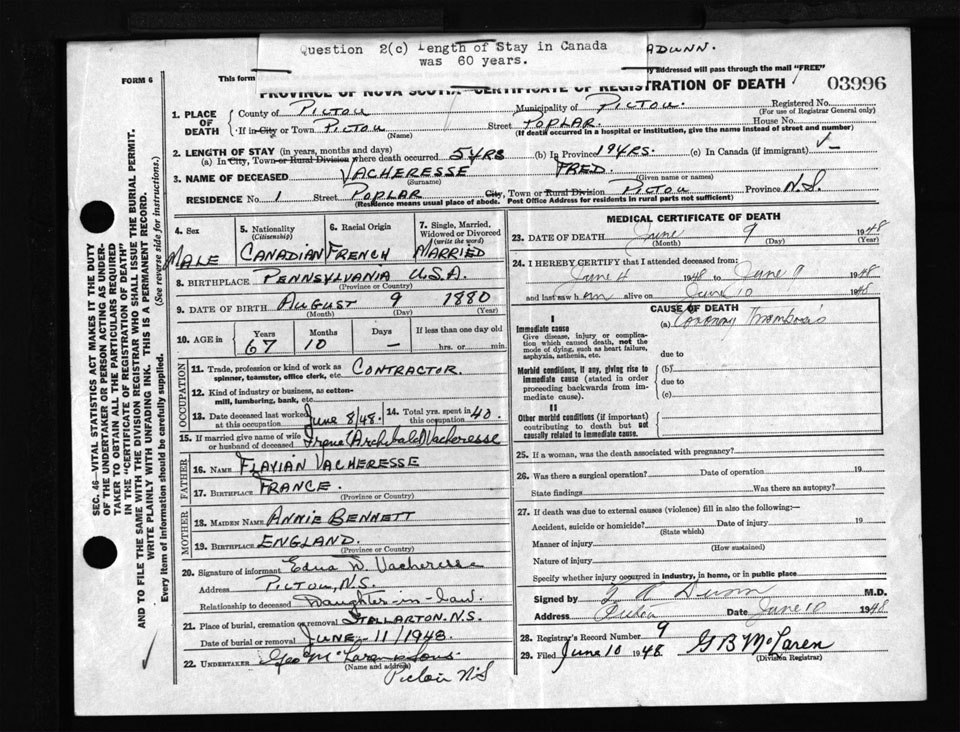 Question 2(c) Length of Stay in Canada
was 60 years.
ADUNN.
FORM 6
This form
by addressed will pass through the mail "FREE"
PROVINCE OF NOVA SCOTIA—CERTIFICATE OF REGISTRATION OF DEATH
03996
1. PLACE OF DEATH
County of PICTOU Municipality of PICTOU. Registered No.
(For use of Registrar General only)
If in City or Town PICTOU Street POPLAR. House No.
(Name) (If death occurred in a hospital or institution, give the name instead of street and number)
2. LENGTH OF STAY (in years, months and days)
(a) In City, Town or Rural Division where death occurred 5 YRS (b) In Province 19 YRS. (c) In Canada (if immigrant) –
3. NAME OF DECEASED VACHERESSE FRED.
(Surname) (Given name or names)
RESIDENCE No. 1 Street POPLAR City, Town or Rural Division PICTOU Province N.S.
(Residence means usual place of abode. Post Office Address for residents in rural parts not sufficient)
4. Sex
MALE
5. Nationality
(Citizenship)
CANADIAN
6. Racial Origin
FRENCH
7. Single, Married, Widowed or Divorced
(write the word)
MARRIED
8. BIRTHPLACE PENNSYLVANIA U.S.A.
(Province or Country)
9. DATE OF BIRTH AUGUST 9 1880
(Month) (Day) (Year)
10. AGE in Years Months Days If less than one day old
67 10 – hrs. or min.
OCCUPATION
11. Trade, profession or kind of work as
spinner, teamster, office clerk, etc. CONTRACTOR.
12. Kind of industry or business, as cotton-
mill, lumbering, bank, etc.
13. Date deceased last worked at this occupation June 8/48. 14. Total yrs. spent in this occupation 40.
15. If married give name of wife or husband of deceased Irene (Archibald) Vacheresse
FATHER
16. NAME FLAVIAN VACHERESSE
17. BIRTHPLACE FRANCE.
(Province or Country)
MOTHER
18. MAIDEN NAME ANNIE BENNETT
19. BIRTHPLACE ENGLAND.
(Province or Country)
20. Signature of informant Edna D. Vacheresse
Address PICTOU, N.S.
Relationship to deceased Daughter-in-law.
21. Place of burial, cremation or removal STELLARTON. N.S.
Date of burial or removal JUNE 11/1948.
22. UNDERTAKER Geo McLaren & Sons
(Name and address)
Pictou N.S
MEDICAL CERTIFICATE OF DEATH
23. DATE OF DEATH June 9 1948
(Month) (Day) (Year)
24. I HEREBY CERTIFY that I attended deceased from:
June 4 1948 to June 9 1948
and last saw h im alive on June 10 1948
CAUSE OF DEATH
I
Immediate cause
Give disease, injury or complication which caused death, not the mode of dying, such as heart failure, asphyxia, asthenia, etc.
(a) Coronary Thrombosis
due to
Morbid conditions, if any, giving rise to immediate cause (stated in order proceeding backwards from immediate cause).
(b)
due to
(c)
II
Other morbid conditions (if important) contributing to death but not causally related to immediate cause.
25. If a woman, was the death associated with pregnancy?
26. Was there a surgical operation? Date of operation 19
State findings Was there an autopsy?
27. If death was due to external causes (violence) fill in also the following:—
Accident, suicide or homicide? Date of injury 19
(State which)
Manner of injury
(How sustained)
Nature of injury
Specify whether injury occurred in industry, in home, or in public place
Signed by Dunn M.D.
Address Pictou Date June 10 1948
28. Registrar's Record Number 9
29. Filed June 10 1948 G B McLaren
(Division Registrar)
SEC. 46—VITAL STATISTICS ACT MAKES IT THE DUTY
OF THE UNDERTAKER OR PERSON ACTING AS UNDER-
TAKER TO OBTAIN ALL THE PARTICULARS REQUIRED
IN THE "CERTIFICATE OF REGISTRATION OF DEATH"
AND TO FILE THE SAME WITH THE DIVISION REGISTRAR WHO SHALL ISSUE THE BURIAL PERMIT.
WRITE PLAINLY WITH UNFADING INK. THIS IS A PERMANENT RECORD.
Every item of information should be carefully supplied. (See reverse side for instructions.)